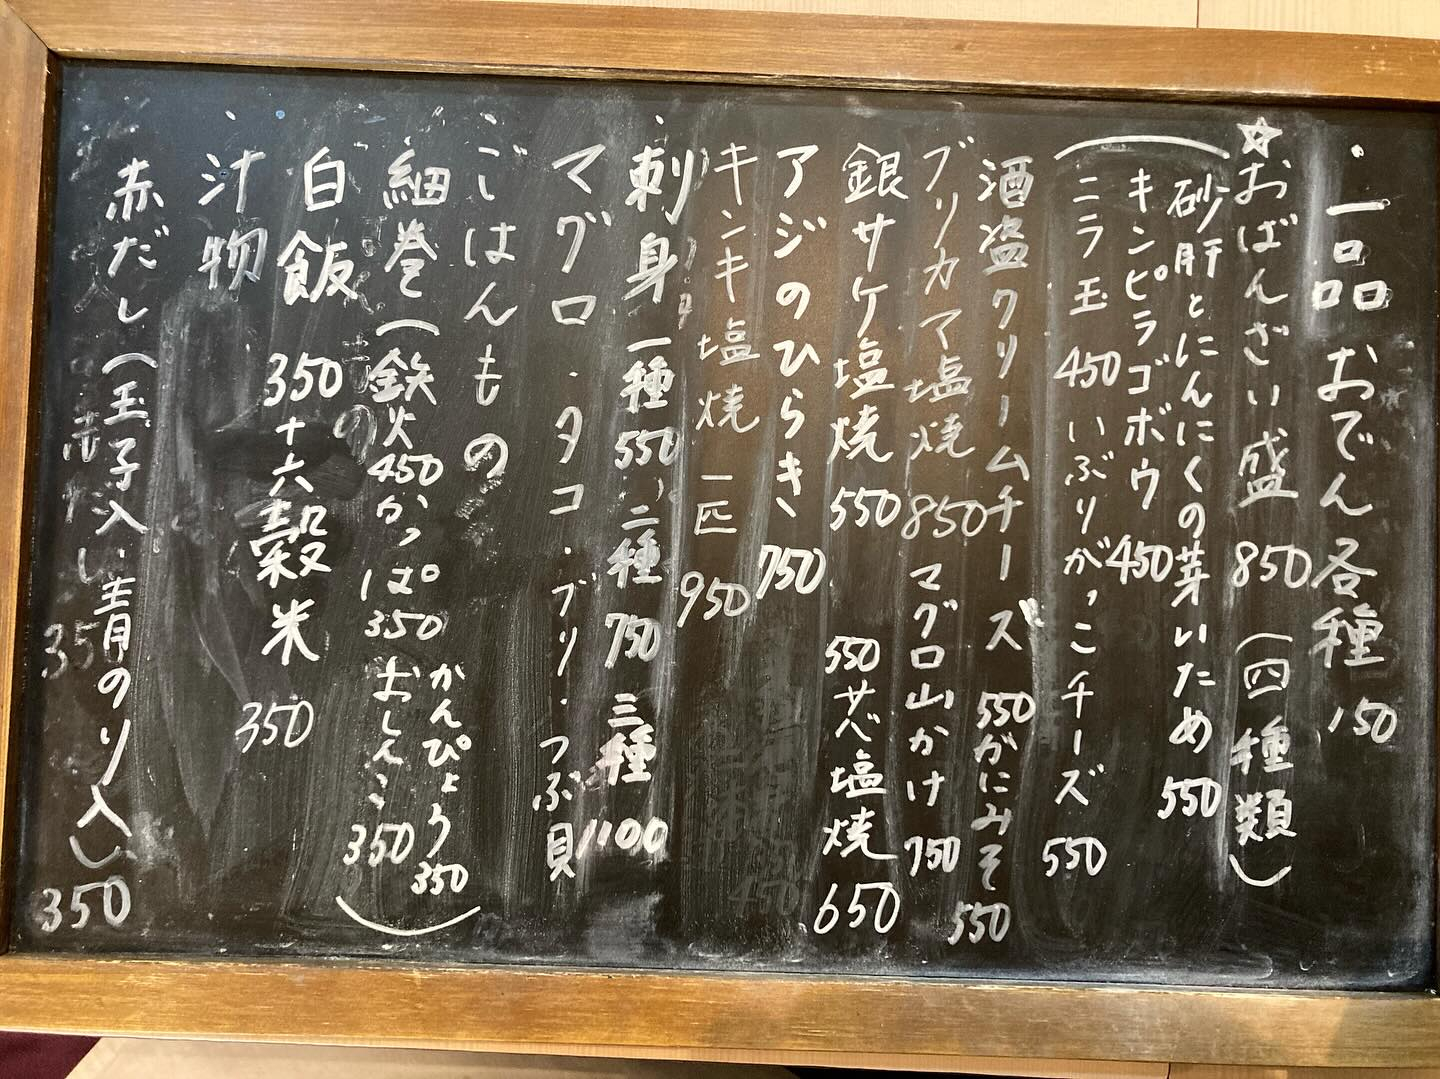 ・一品 おでん各種 150
☆おばんざい盛 850 (四種類)
(砂肝とにんにくの芽いため 550
キンピラゴボウ 450
ニラ玉 450 いぶりがっこチーズ 550
酒盗クリームチーズ 550 がにみそ 550
ブリカマ塩焼 850 マグロ山かけ 750
銀サケ塩焼 550 サバ塩焼 650
アジのひらき 750
キンキ塩焼 一匹 950
・刺身 一種 550 二種 750 三種 1100
マグロ・タコ・ブリ・つぶ貝
・ごはんもの
細巻(鉄火 450 かっぱ 350 おしんこ 350
かんぴょう 350)
白飯 350 十六穀米 350
・汁物
赤だし(玉子入い青のり入い) 350